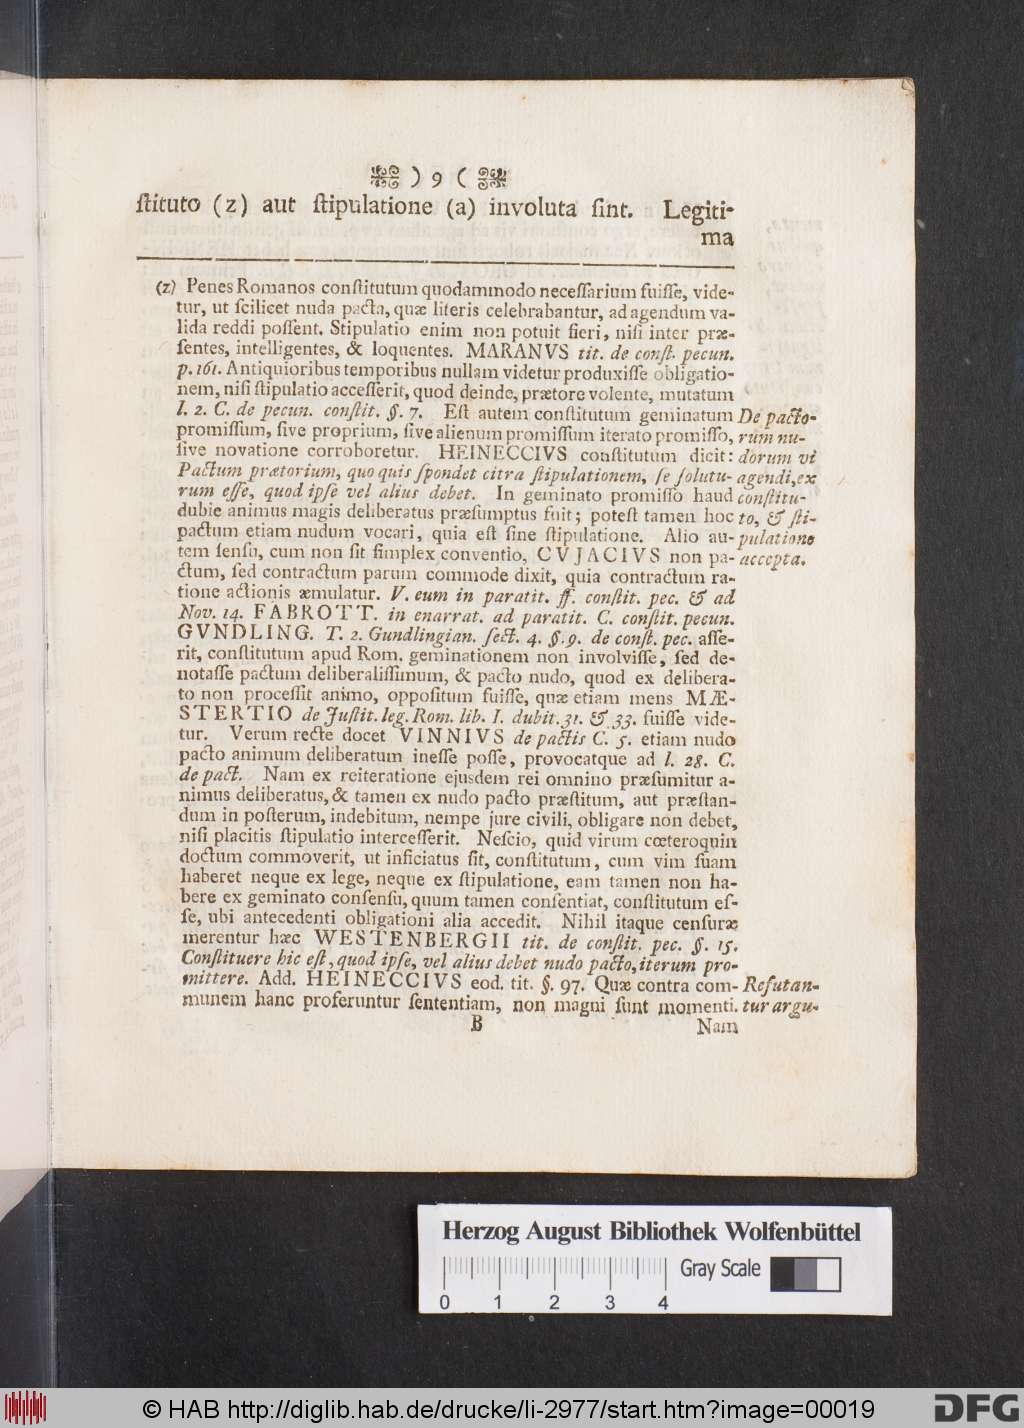 ) 9 (
ſtituto (z) aut ſtipulatione (a) involuta ſint. Legiti-
ma
(z) Penes Romanos conſtitutum quodammodo neceſſarium fuiſſe, vide-
tur, ut ſcilicet nuda pacta, quæ literis celebrabantur, ad agendum va-
lida reddi poſſent. Stipulatio enim non potuit fieri, niſi inter præ-
ſentes, intelligentes, & loquentes. MARANVS tit. de conſt. pecun.
p. 161. Antiquioribus temporibus nullam videtur produxiſſe obligatio-
nem, niſi ſtipulatio acceſſerit, quod deinde, prætore volente, mutatum
l. 2. C. de pecun. conſtit. §. 7. Eſt autem conſtitutum geminatum
promiſſum, ſive proprium, ſive alienum promiſſum iterato promiſſo,
ſive novatione corroboretur. HEINECCIVS conſtitutum dicit:
Pactum prætorium, quo quis ſpondet citra ſtipulationem, ſe ſolutu-
rum eſſe, quod ipſe vel alius debet. In geminato promiſſo haud
dubie animus magis deliberatus præſumptus fuit; poteſt tamen hoc
pactum etiam nudum vocari, quia eſt ſine ſtipulatione. Alio au-
tem ſenſu, cum non ſit ſimplex conventio, CVJACIVS non pa-
ctum, ſed contractum parum commode dixit, quia contractum ra-
tione actionis æmulatur. V. eum in paratit. ff. conſtit. pec. & ad
Nov. 14. FABROTT. in enarrat. ad paratit. C. conſtit. pecun.
GVNDLING. T. 2. Gundlingian. ſect. 4. §. 9. de conſt. pec. aſſe-
rit, conſtitutum apud Rom. geminationem non involviſſe, ſed de-
notaſſe pactum deliberaliſſimum, & pacto nudo, quod ex delibera-
to non proceſſit animo, oppoſitum fuiſſe, quæ etiam mens MÆ-
STERTIO de Juſtit. leg. Rom. lib. I. dubit. 31. & 33. fuiſſe vide-
tur. Verum recte docet VINNIVS de pactis C. 5. etiam nudo
pacto animum deliberatum ineſſe poſſe, provocatque ad l. 28. C.
de pact. Nam ex reiteratione ejusdem rei omnino præſumitur a-
nimus deliberatus, & tamen ex nudo pacto præſtitum, aut præſtan-
dum in poſterum, indebitum, nempe jure civili, obligare non debet,
niſi placitis ſtipulatio interceſſerit. Neſcio, quid virum cœteroquin
doctum commoverit, ut inficiatus ſit, conſtitutum, cum vim ſuam
haberet neque ex lege, neque ex ſtipulatione, eam tamen non ha-
bere ex geminato conſenſu, quum tamen conſentiat, conſtitutum eſ-
ſe, ubi antecedenti obligationi alia accedit. Nihil itaque cenſuræ
merentur hæc WESTENBERGII tit. de conſtit. pec. §. 15.
Conſtituere hic eſt, quod ipſe, vel alius debet nudo pacto, iterum pro-
mittere. Add. HEINECCIVS eod. tit. §. 97. Quæ contra com-
munem hanc proferuntur ſententiam, non magni ſunt momenti.
B
Nam
De pacto-
rum nu-
dorum vi
agendi, ex
conſtitu-
to, & ſti-
pulatione
accepta.
Refutan-
tur argu-
Herzog August Bibliothek Wolfenbüttel
Gray Scale
0 1 2 3 4
© HAB http://diglib.hab.de/drucke/li-2977/start.htm?image=00019
DFG